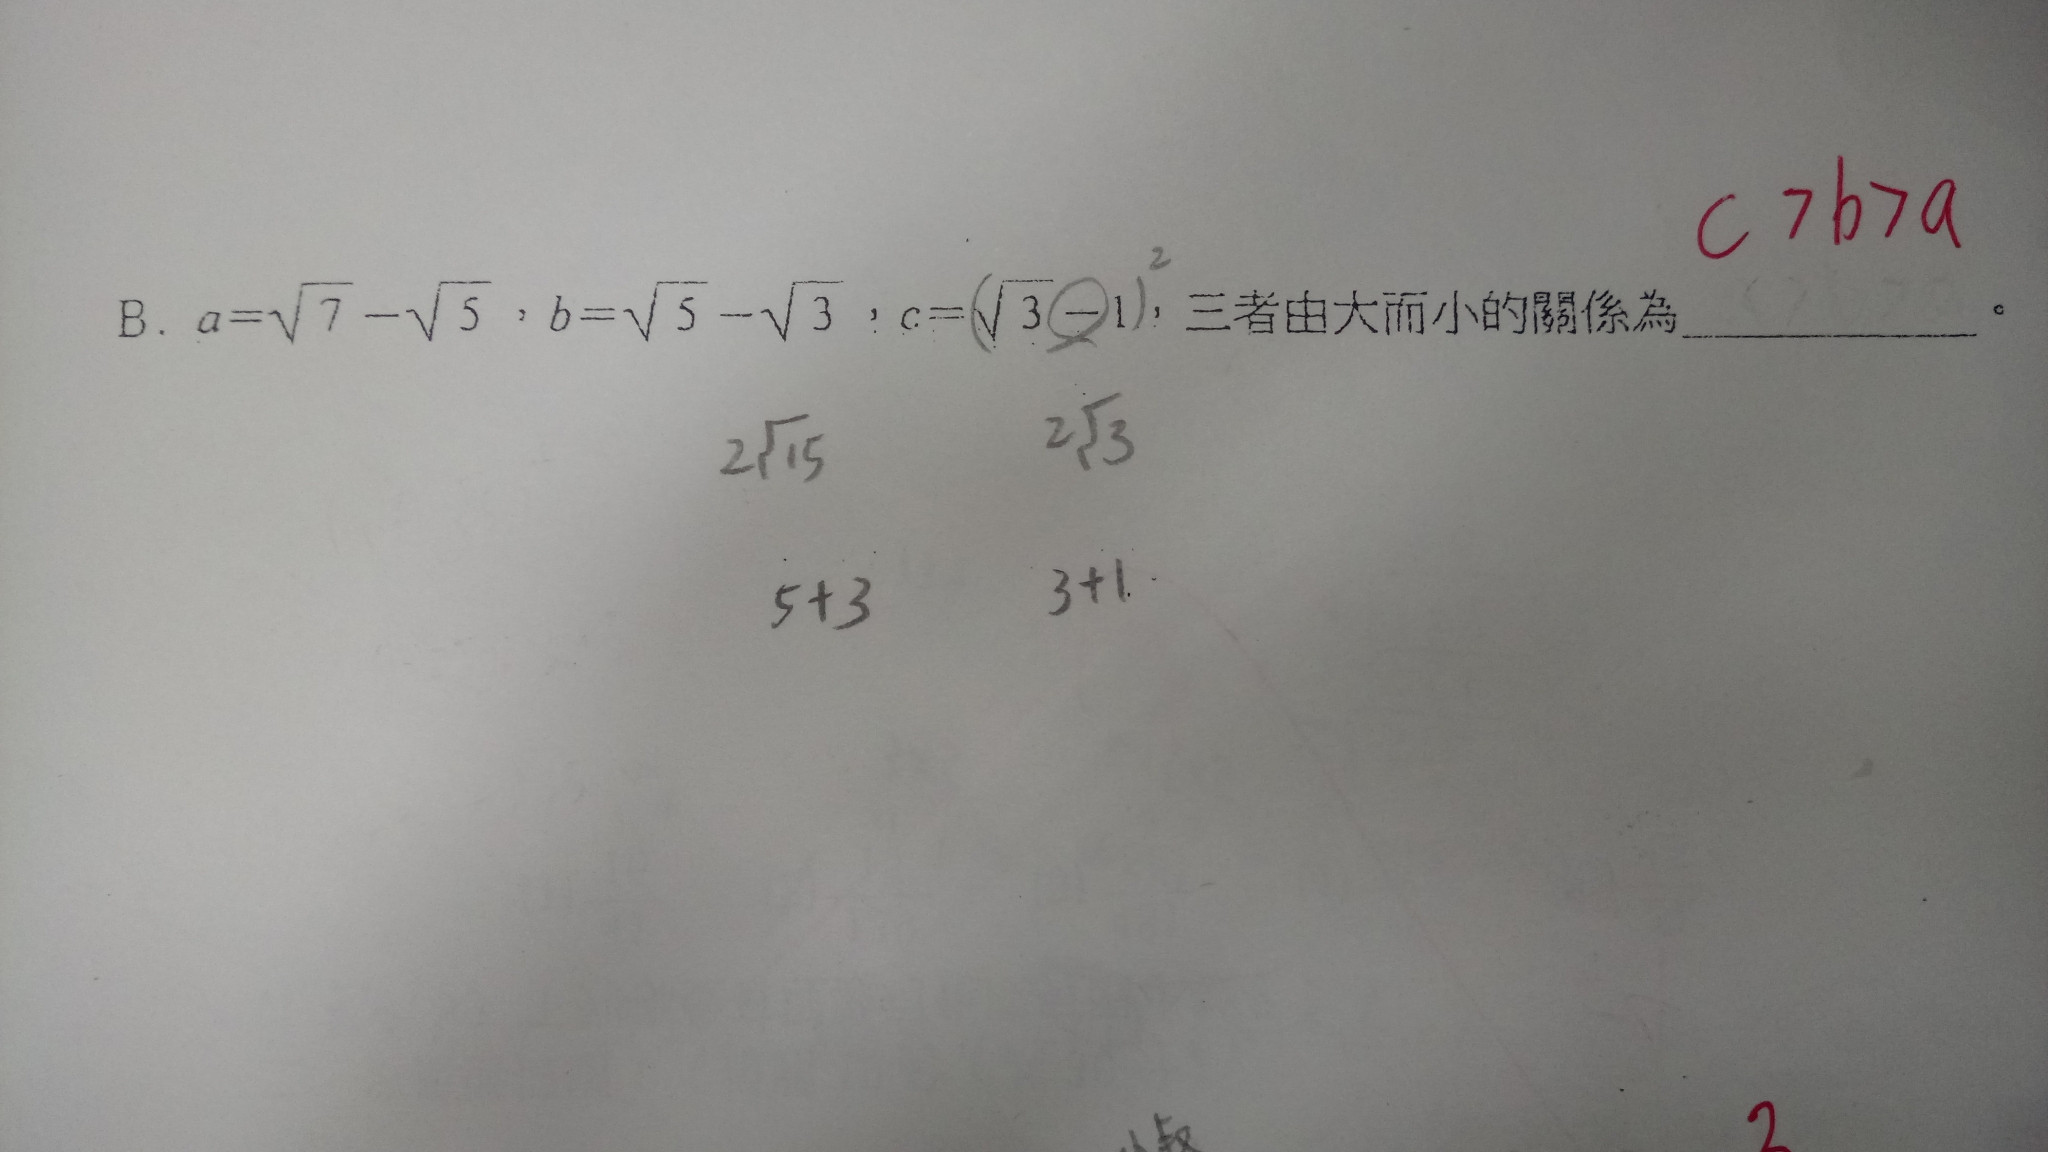 c>b>a
B. a=√7-√5，b=√5-√3，c=(√3-1)²，三者由大而小的關係為__________。
2√15 2√3
5+3 3+1
2